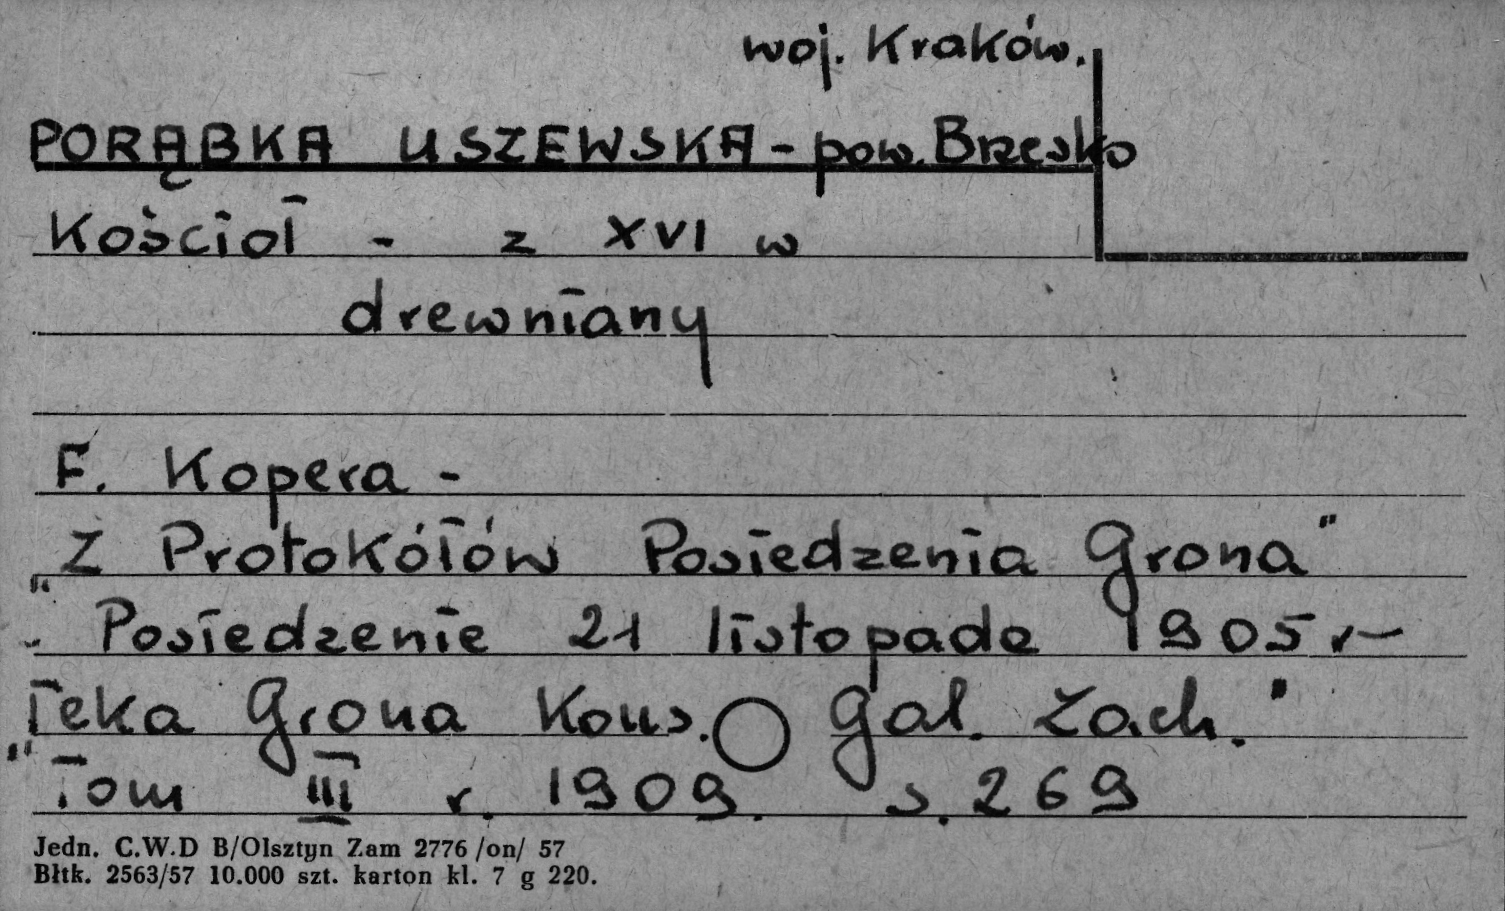 woj. Kraków.
PORĄBKA USZEWSKA - pow. Brzesko
Kościoł - z XVI w
drewniany
F. Kopera -
"Z Protokółów Posiedzenia Grona"
"Posiedzenie 21 listopada 1905 r-
"Teka Grona Kons. Gal. Zach."
Tom III r. 1909. s. 269
Jedn. C.W.D B/Olsztyn Zam 2776 /on/ 57
Błtk. 2563/57 10.000 szt. karton kl. 7 g 220.